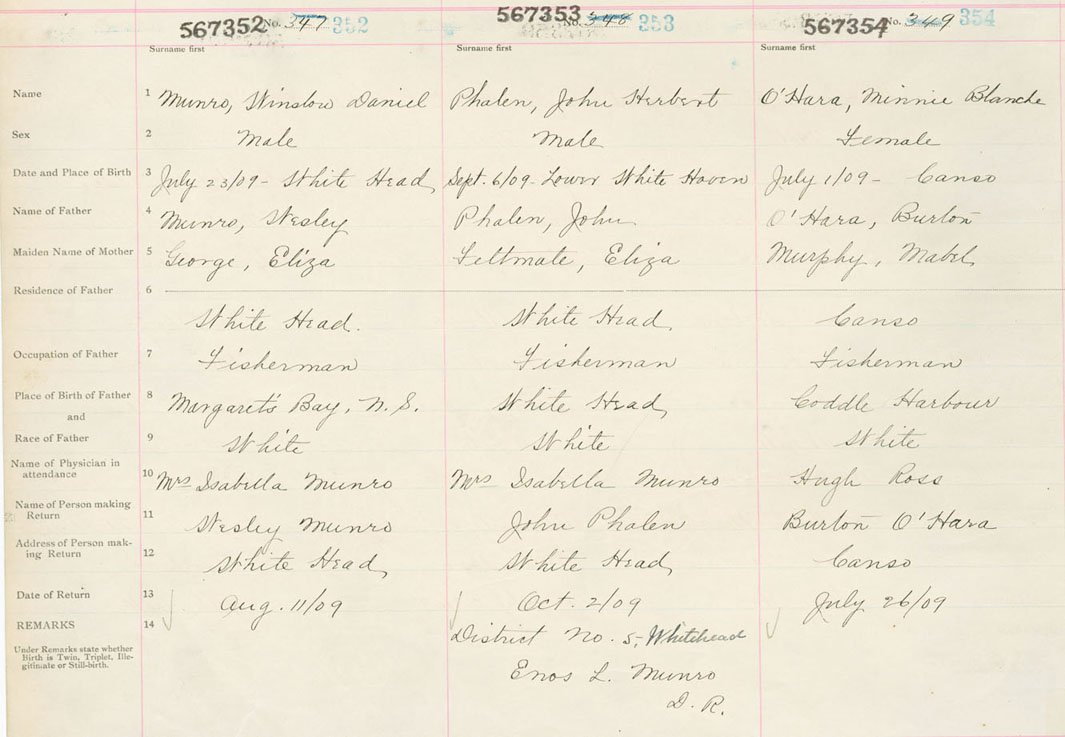 567352 No. 347 352
567353 No. 348 353
567354 No. 349 354
Surname first Surname first Surname first
Name 1 Munro, Winslow Daniel Phalen, John Herbert O'Hara, Minnie Blanche
Sex 2 Male Male Female
Date and Place of Birth 3 July 23/09 - White Head, Sept. 6/09 - Lower White Haven July 1/09 - Canso
Name of Father 4 Munro, Wesley Phalen, John O'Hara, Burton
Maiden Name of Mother 5 George, Eliza Feltmate, Eliza Murphy, Mabel
Residence of Father 6
White Head. White Head, Canso
Occupation of Father 7 Fisherman Fisherman Fisherman
Place of Birth of Father 8 Margaret's Bay, N. S. White Head, Coddle Harbour
and
Race of Father 9 White White White
Name of Physician in
attendance 10 Mrs Isabella Munro Mrs Isabella Munro Hugh Ross
Name of Person making
Return 11 Wesley Munro John Phalen Burton O'Hara
Address of Person mak-
ing Return 12 White Head, White Head, Canso
Date of Return 13 Aug. 11/09 Oct. 2/09 July 26/09
REMARKS 14 District No. 5, Whitehead
Under Remarks state whether
Birth is Twin, Triplet, Ille-
gitimate or Still-birth.
Enos L. Munro
D. R.